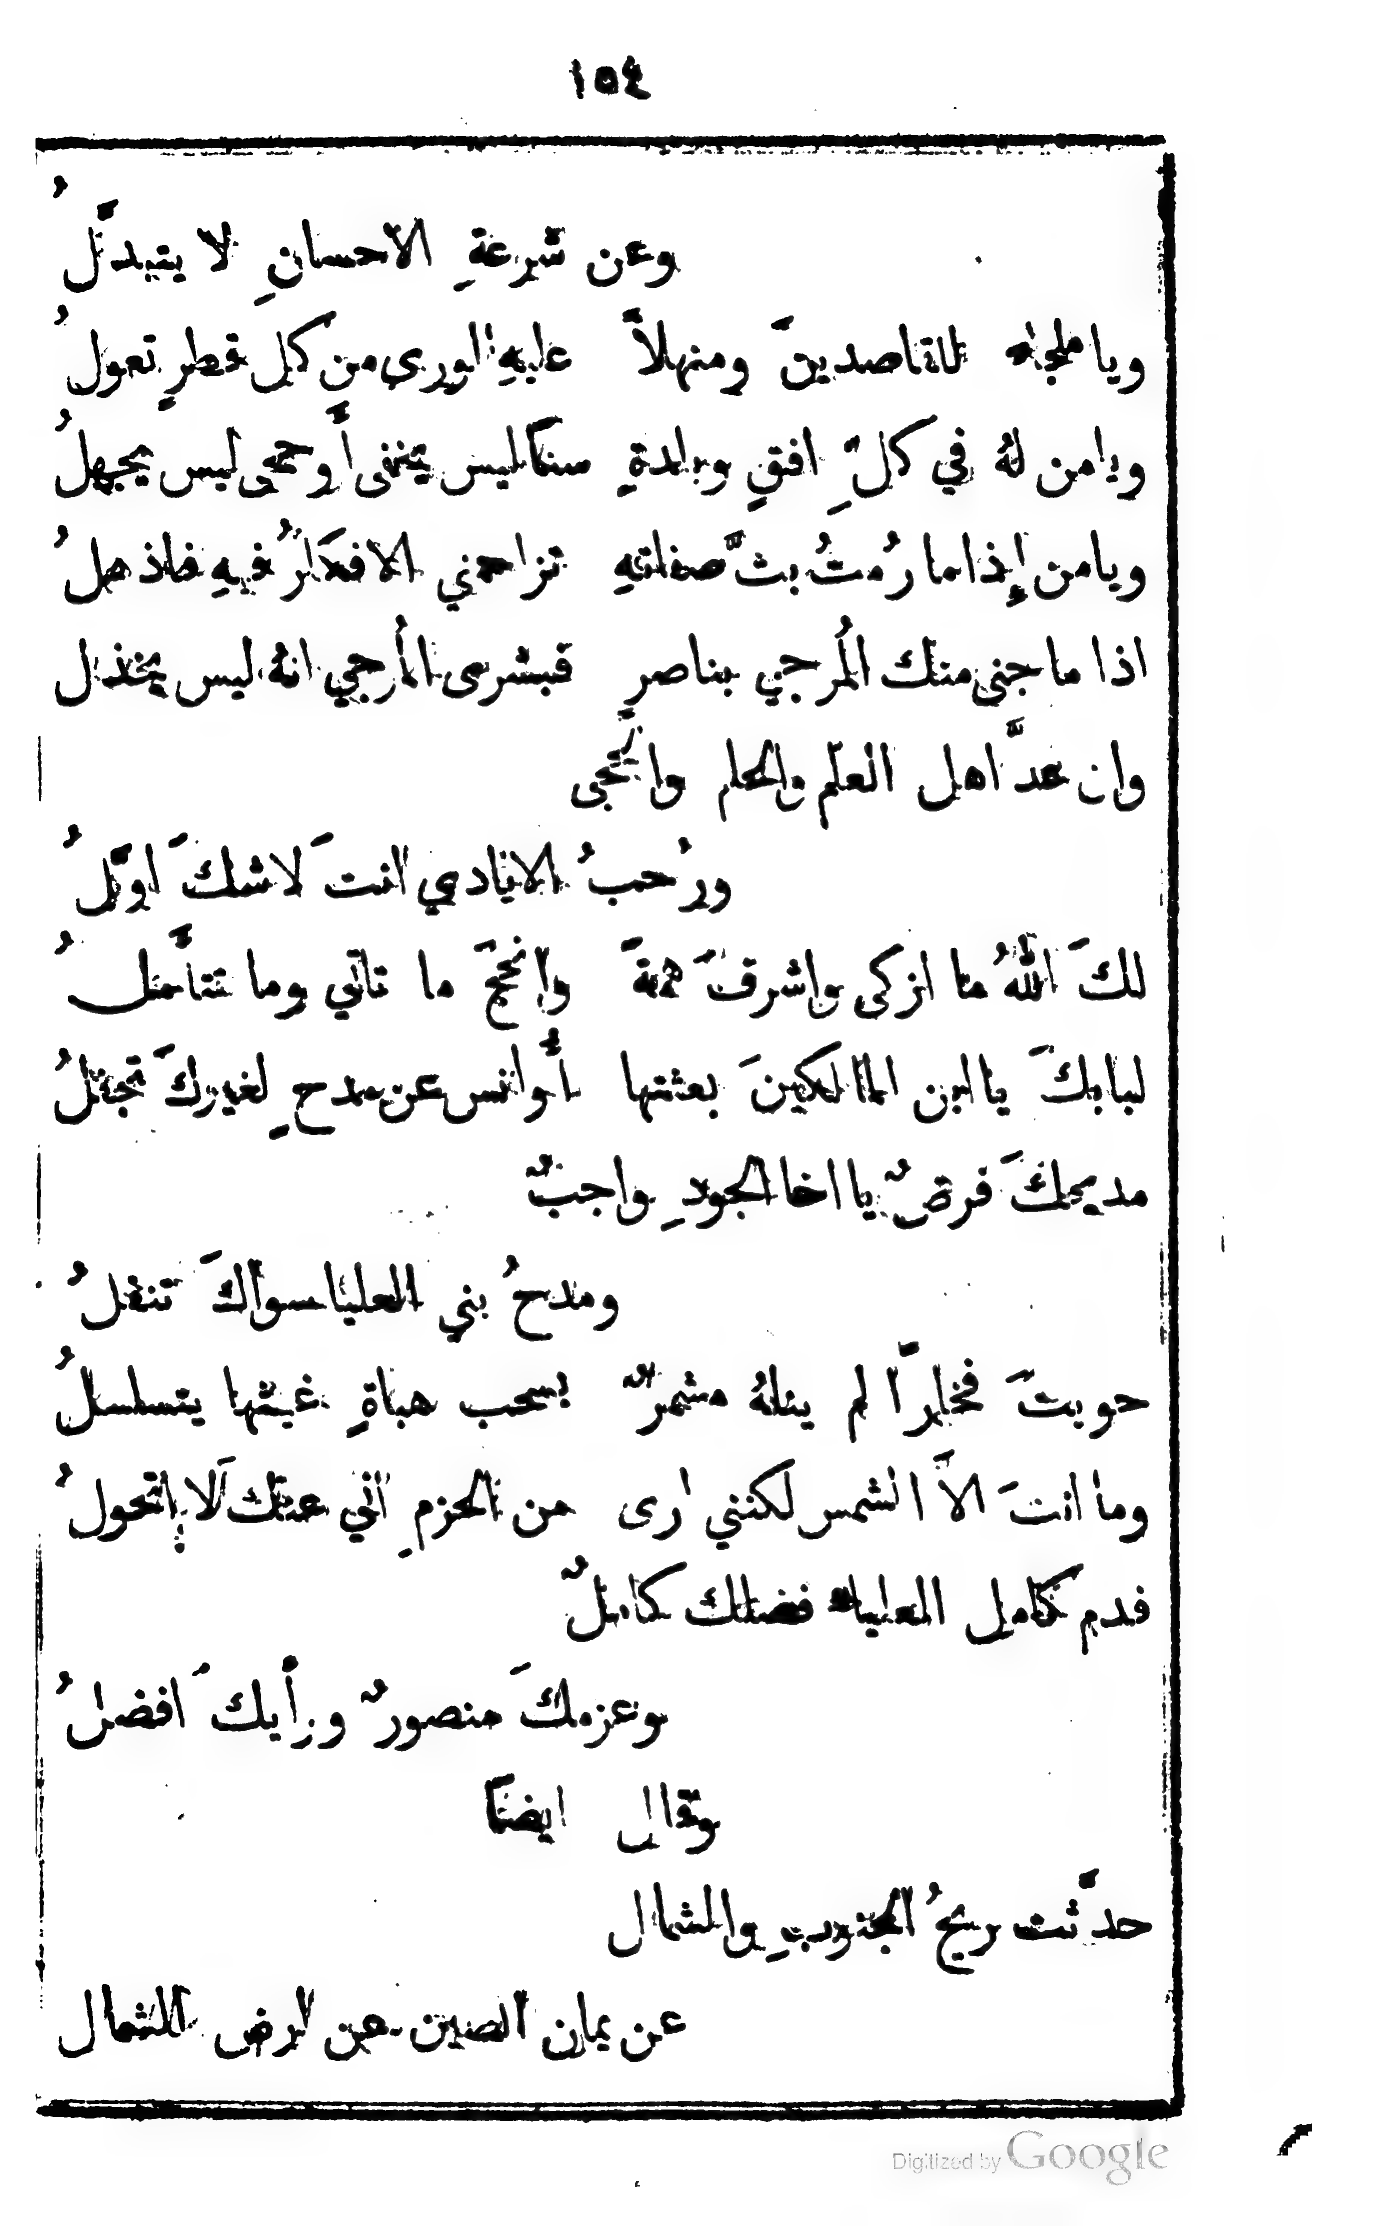 ١٥٤
وعن شرعةِ الاحسانِ لا يتبدَّلُ
ويا ملجاء للقاصدينَ ومنهلاً عليهِ الورى من كل قطرٍ تعولُ
ويامن لهُ في كلِّ افقٍ وبلدةٍ سنًا ليس يتننى أَو حمى ليس يجهلُ
ويامن إِذا ما رُمتُ بثَّ صفاتهِ تزاحمني الافكارُ فيهِ فاذهلُ
اذا ما جنى منك المُرجي بناصرٍ فبشرى المُرجي انهُ ليس يخذل
وان عدَّ اهل العلم والحلم والحجى
ورُحبُ الايادي انتَ لاشكَ اوَّلُ
لكَ اللهُ ما ازكى واشرفَ همةً وانجحَ ما تاتي وما تتأَملُ
لبابكَ يا ابن المالكينَ بعثتها أَوانس عن مدحٍ لغيركَ تجفلُ
مديحكَ فرضٌ يا اخا الجودِ واجبٌ
ومدحُ بني العليا سواكَ تنفلُ
حويتَ فخارًا لم ينلهُ مشمرٌ بسحب هباةٍ غيثها يتسلسلُ
وما انتَ الاَّ الشمس لكنني ارى من الحزمِ اني عنك لاَ إتحولُ
فدم كامل العلياء فضلك كاملٌ
وعزمكَ منصورٌ ورأيكَ افضلُ
وقال ايضًا
حدَّثت ريحُ الجنوبِ والشمال
عن يمان الصين عن ارض الشمال
Digitized by Google